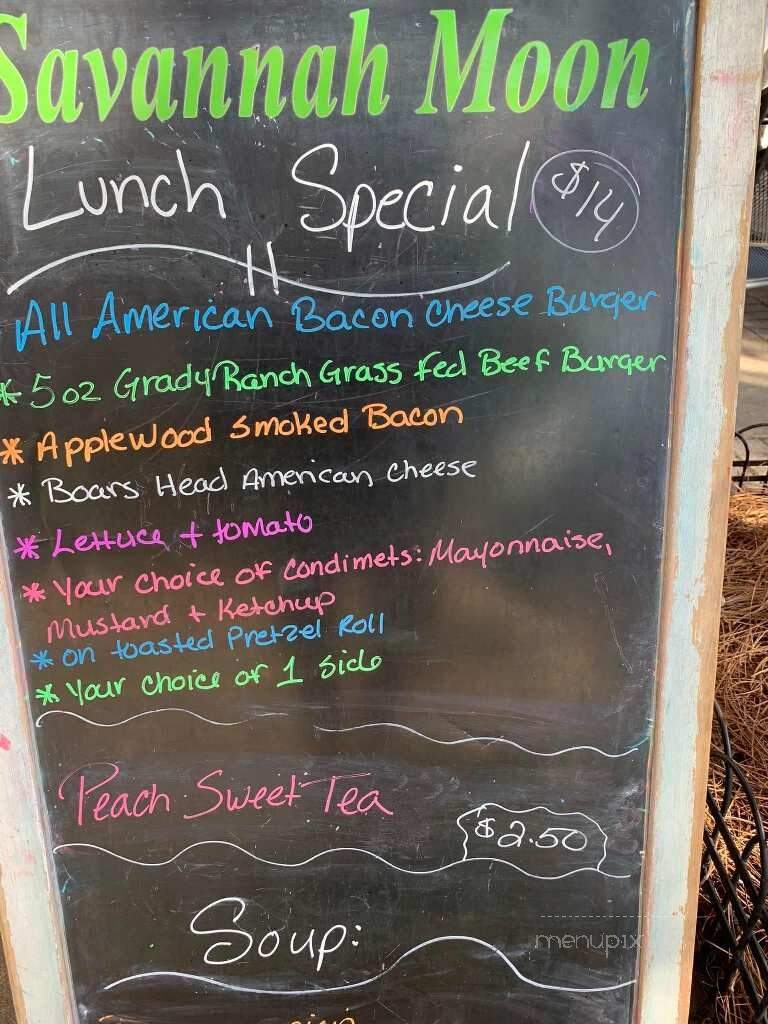 Savannah Moon
Lunch Special $14
All American Bacon Cheese Burger
* 5 oz Grady Ranch Grass Fed Beef Burger
* Applewood Smoked Bacon
* Boars Head American Cheese
* Lettuce + tomato
* Your choice of Condimets: Mayonnaise,
Mustard + Ketchup
* on toasted Pretzel Roll
* Your choice of 1 side
Peach Sweet Tea
$2.50
Soup:
menupix